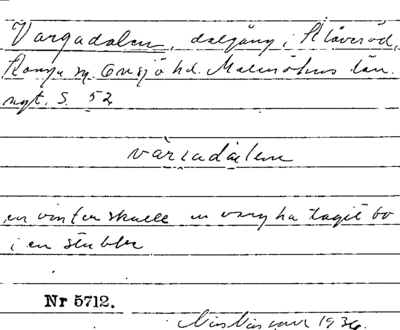 Vargadalen, dalgång i Allaröd,
Konga sn. Onsjö hd. Malmöhus län.
nyt. S. 52
en vinter skulle en varg ha tagit bo
i en stubbe
Nr 5712.
1936.